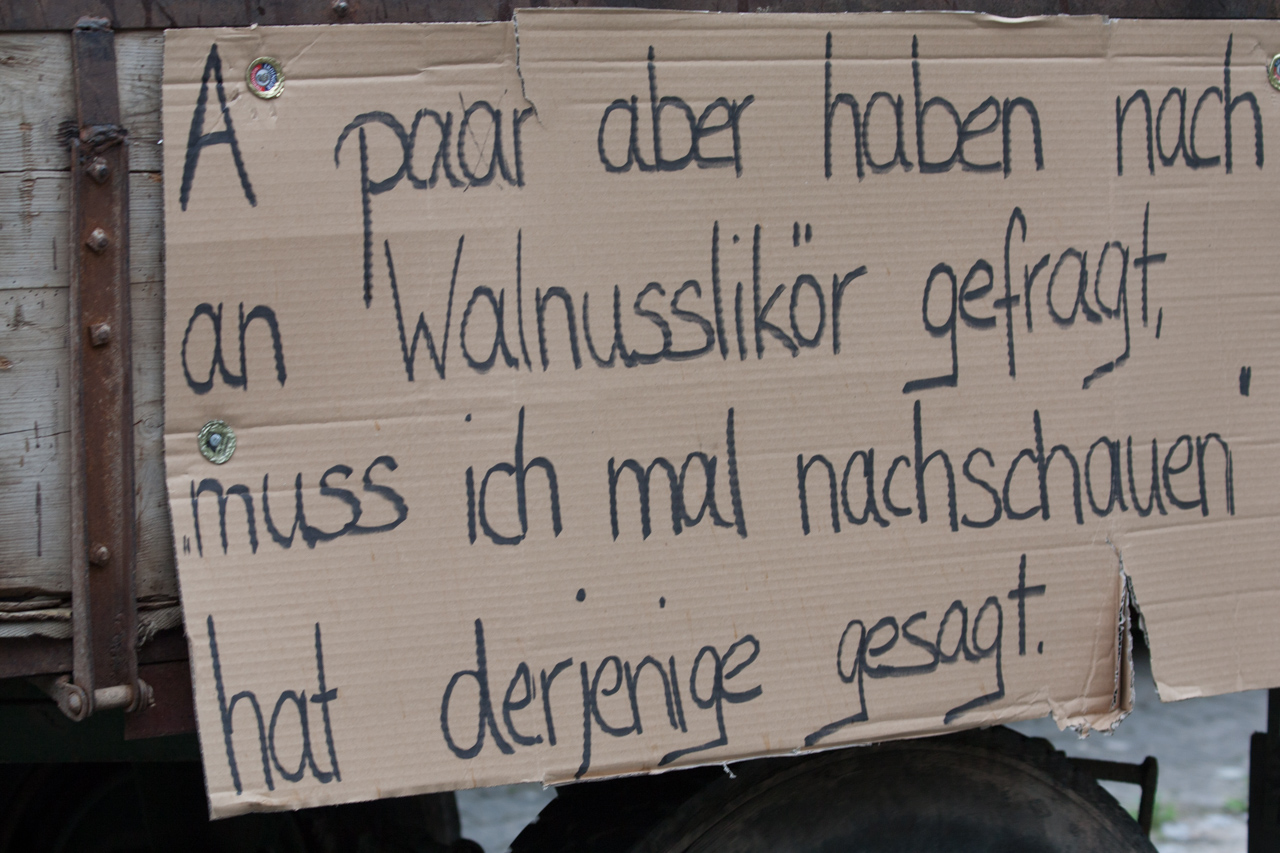 A paar aber haben nach
an Walnusslikör gefragt,
„muss ich mal nachschauen"
hat derjenige gesagt.